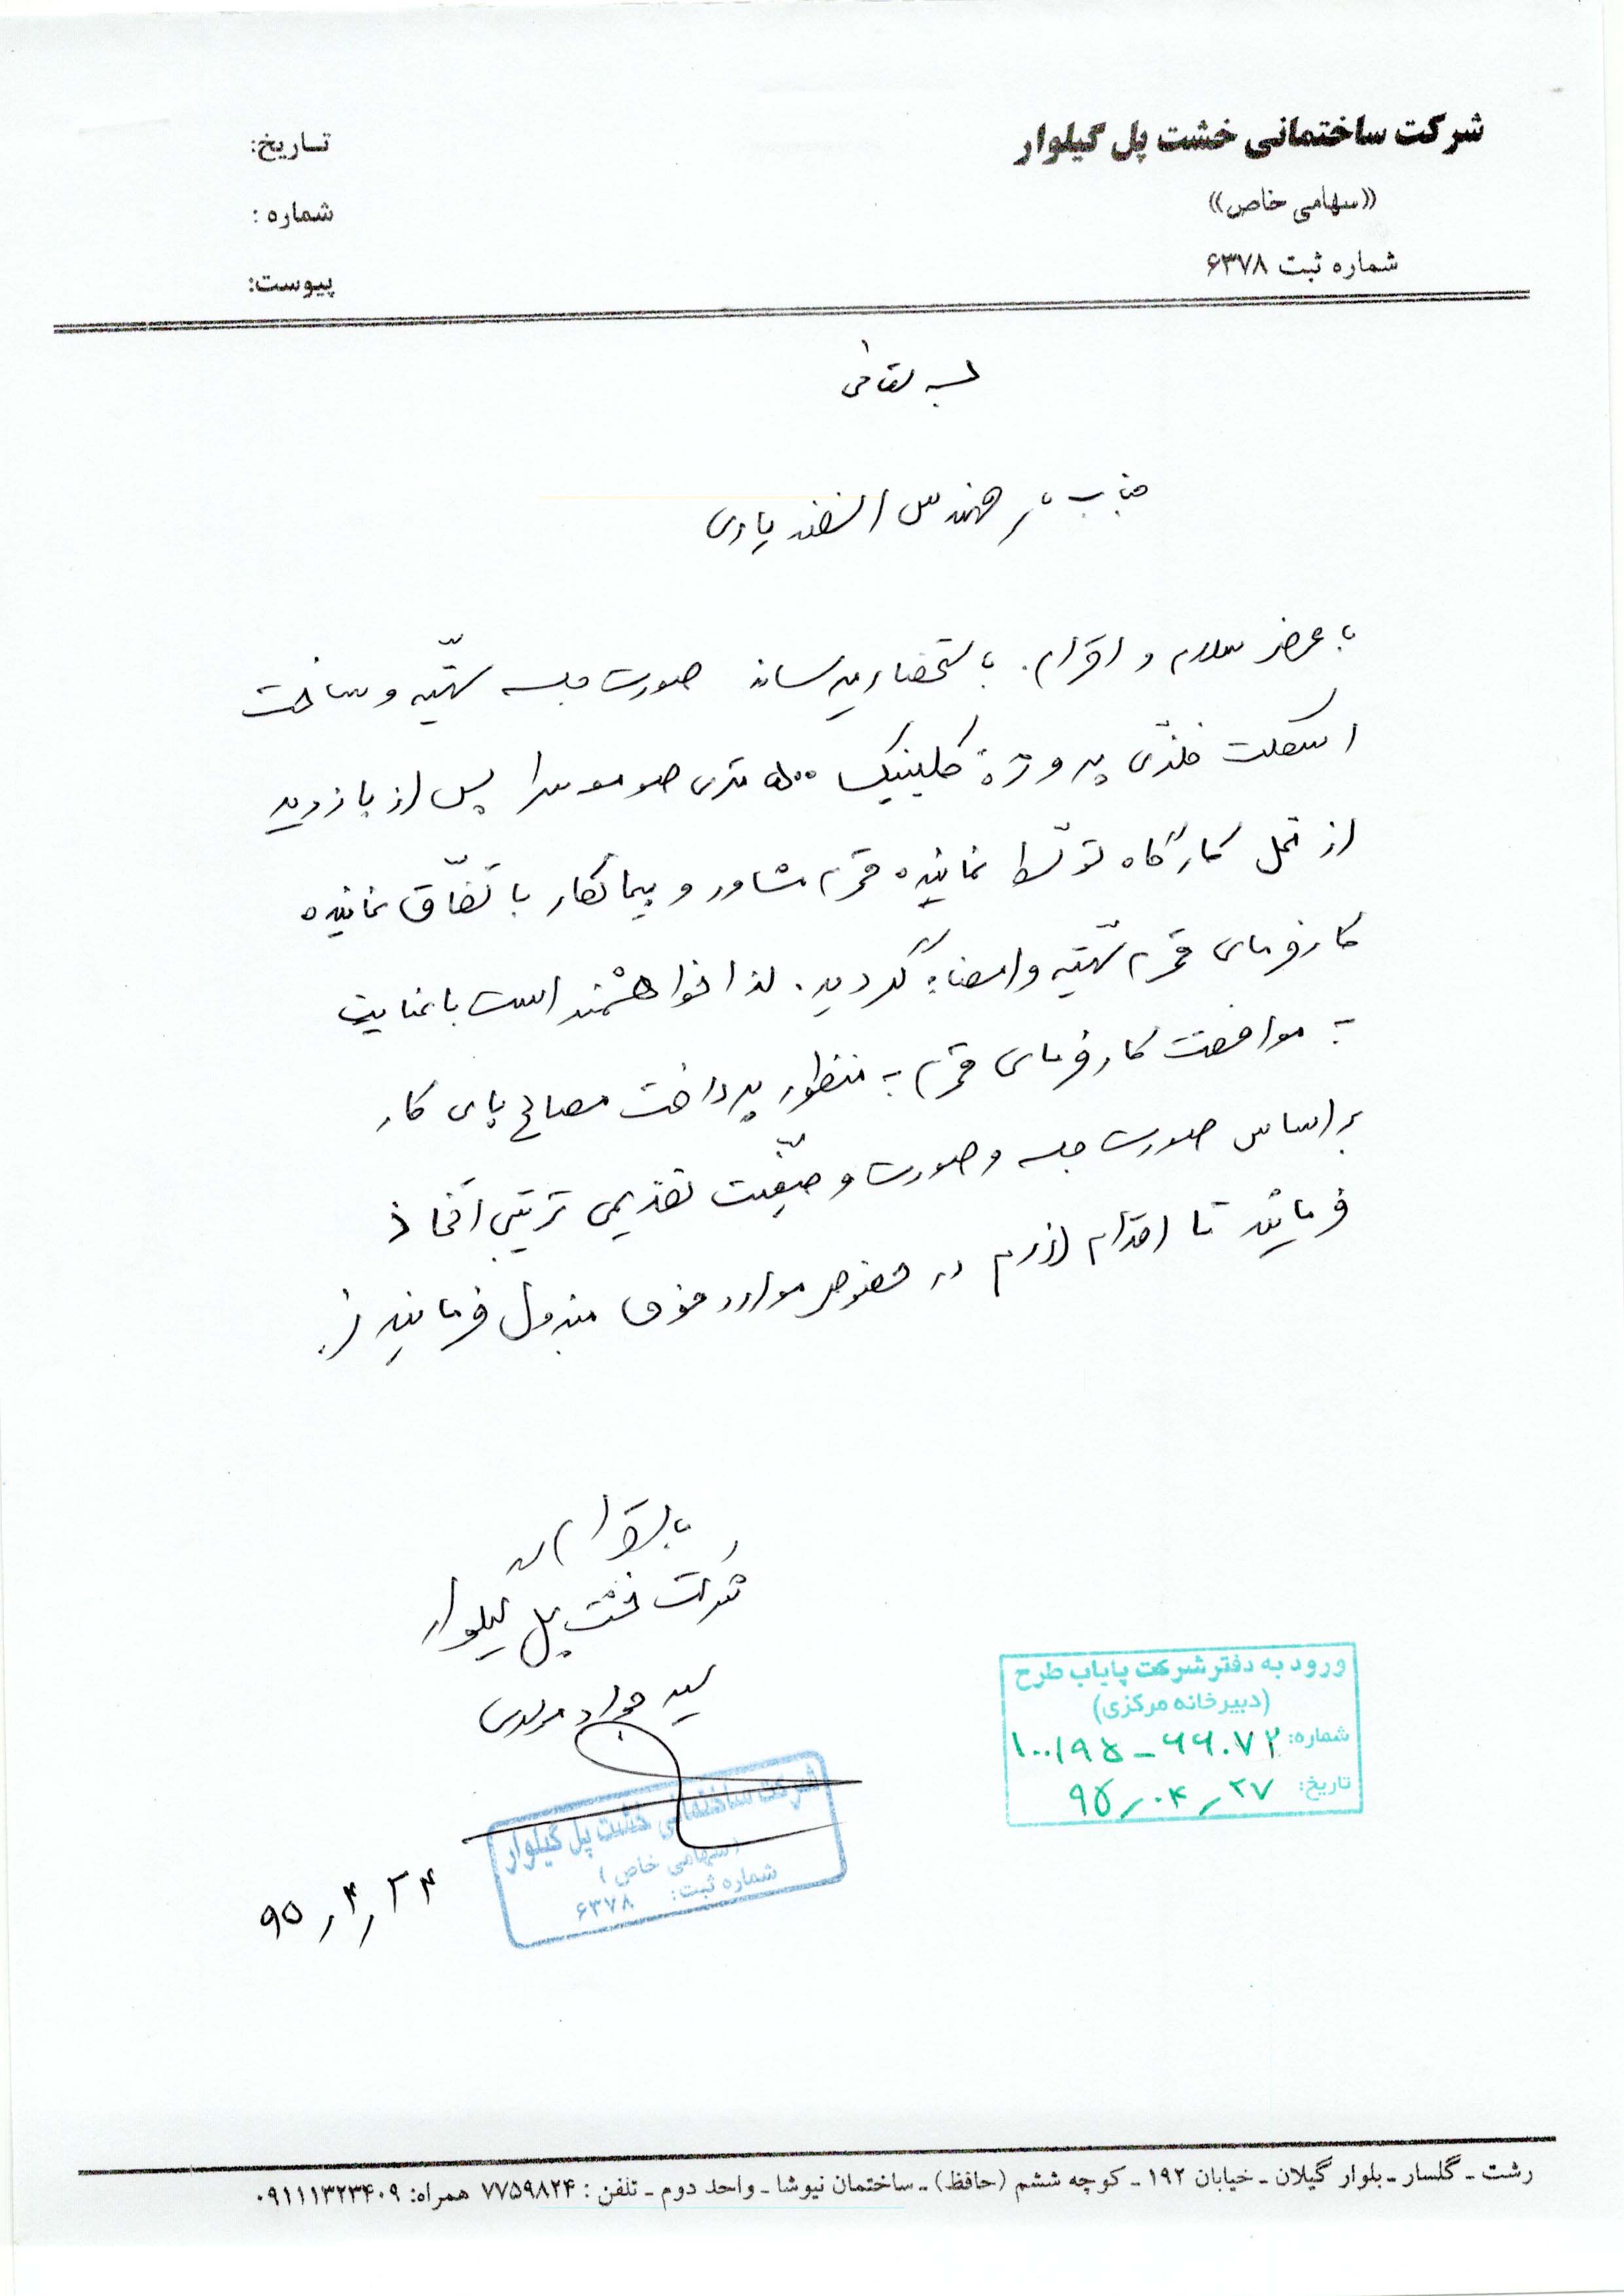 شرکت ساختمانی خشت پل گیلوار
((سهامی خاص))
شماره ثبت ۶۳۷۸
تاریخ:
شماره :
پیوست:
بسمه تعالی
جناب آقای مهندس اسفندیاری
با عرض سلام و احترام. باستحضار میرساند صورت جلسه تهیّه و ساخت
اسکلت فلزّی پروژه کلینیک ۵۰۰ متری صومعه سرا پس از بازدید
از محل کارگاه توسّط نماینده محترم مشاور و پیمانکار با تفّاق نماینده
کارفرمای محترم تهّیه و امضاء گردید. لذا خواهشمند است با عنایت
به موافقت کارفرمای محترم به منظور پرداخت مصالح پای کار
بر اساس صورت جلسه و صورت وضعیّت تقدیمی ترتیبی اتخاذ
فرمائید تا اقدام لازم در خصوص موارد فوق مبذول فرمایند.
با احترام
شرکت خشت پل گیلوار
سید جواد مرادی
شرکت ساختمانی خشت پل گیلوار
(سهامی خاص)
شماره ثبت: ۶۳۷۸
۹۵٫۴٫۲۴
ورود به دفتر شرکت پایاب طرح
(دبیرخانه مرکزی)
شماره: ۱۰۰/۹۵-۶۶۰۷۲
تاریخ: ۹۵٫۰۴٫۲۷
رشت ـ گلسار ـ بلوار گیلان ـ خیابان ۱۹۲ ـ کوچه ششم (حافظ) ـ ساختمان نیوشا ـ واحد دوم ـ تلفن : ۷۷۵۹۸۲۴ همراه: ۰۹۱۱۱۳۲۳۴۰۹